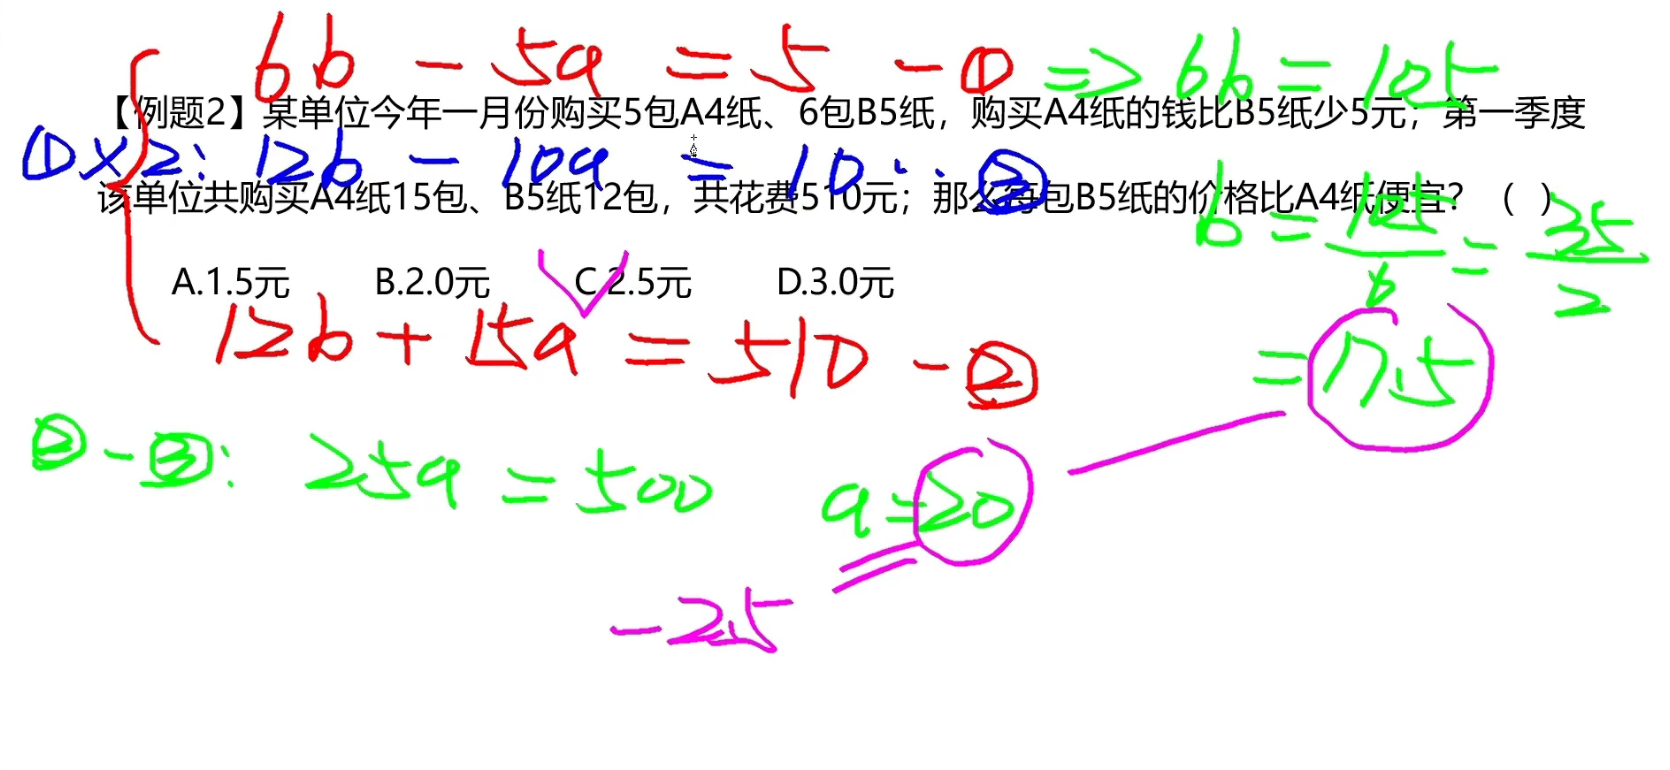 6b - 5a = 5 - ① => 6b = 105
【例题2】某单位今年一月份购买5包A4纸、6包B5纸，购买A4纸的钱比B5纸少5元；第一季度
①×2: 12b - 10a = 10 ·· ③
该单位共购买A4纸15包、B5纸12包，共花费510元；那么每包B5纸的价格比A4纸便宜？（ ）
b = 105/6 = 35/2
A.1.5元 B.2.0元 C.2.5元 D.3.0元
12b + 15a = 510 - ②
= 17.5
②-③: 25a = 500 a=20
-2.5